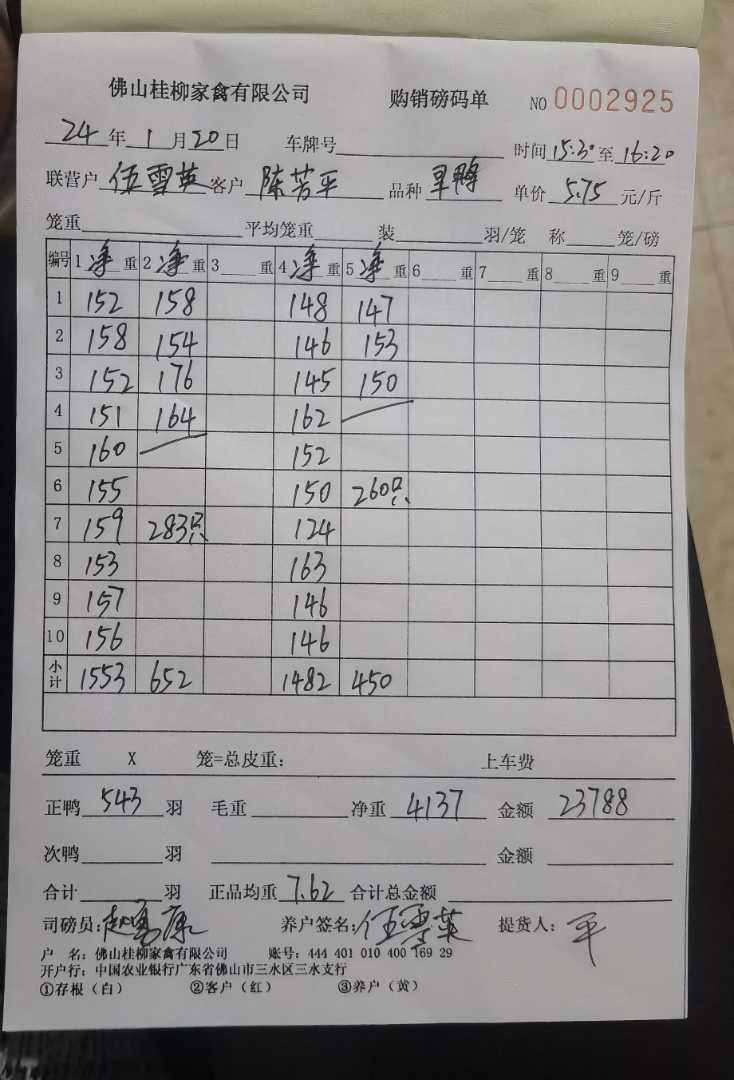 佛山桂柳家禽有限公司 购销磅码单 NO 0002925
24年1月20日 车牌号 时间15:30至16:20
联营户 伍雪英 客户 陈芳平 品种 旱鸭 单价 5.75 元/斤
笼重 平均笼重 装 羽/笼 称 笼/磅
编号 1 净重 2 净重 3 重 4 净重 5 净重 6 重 7 重 8 重 9 重
1 152 158 148 147
2 158 154 146 153
3 152 176 145 150
4 151 164 162
5 160 152
6 155 150 260只
7 159 283只 124
8 153 163
9 157 146
10 156 146
小计 1553 652 1482 450
笼重 X 笼=总皮重: 上车费
正鸭 543 羽 毛重 净重 4137 金额 23788
次鸭 羽 金额
合计 羽 正品均重 7.62 合计总金额
司磅员: 养户签名: 伍雪英 提货人: 平
户 名: 佛山桂柳家禽有限公司 账号: 444 401 010 400 169 29
开户行: 中国农业银行广东省佛山市三水区三水支行
①存根(白) ②客户(红) ③养户(黄)